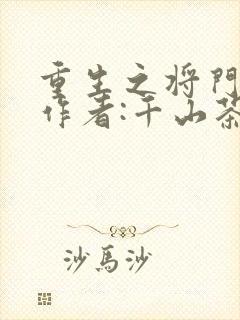 重生之将門
作者:千山茶
沙馬沙